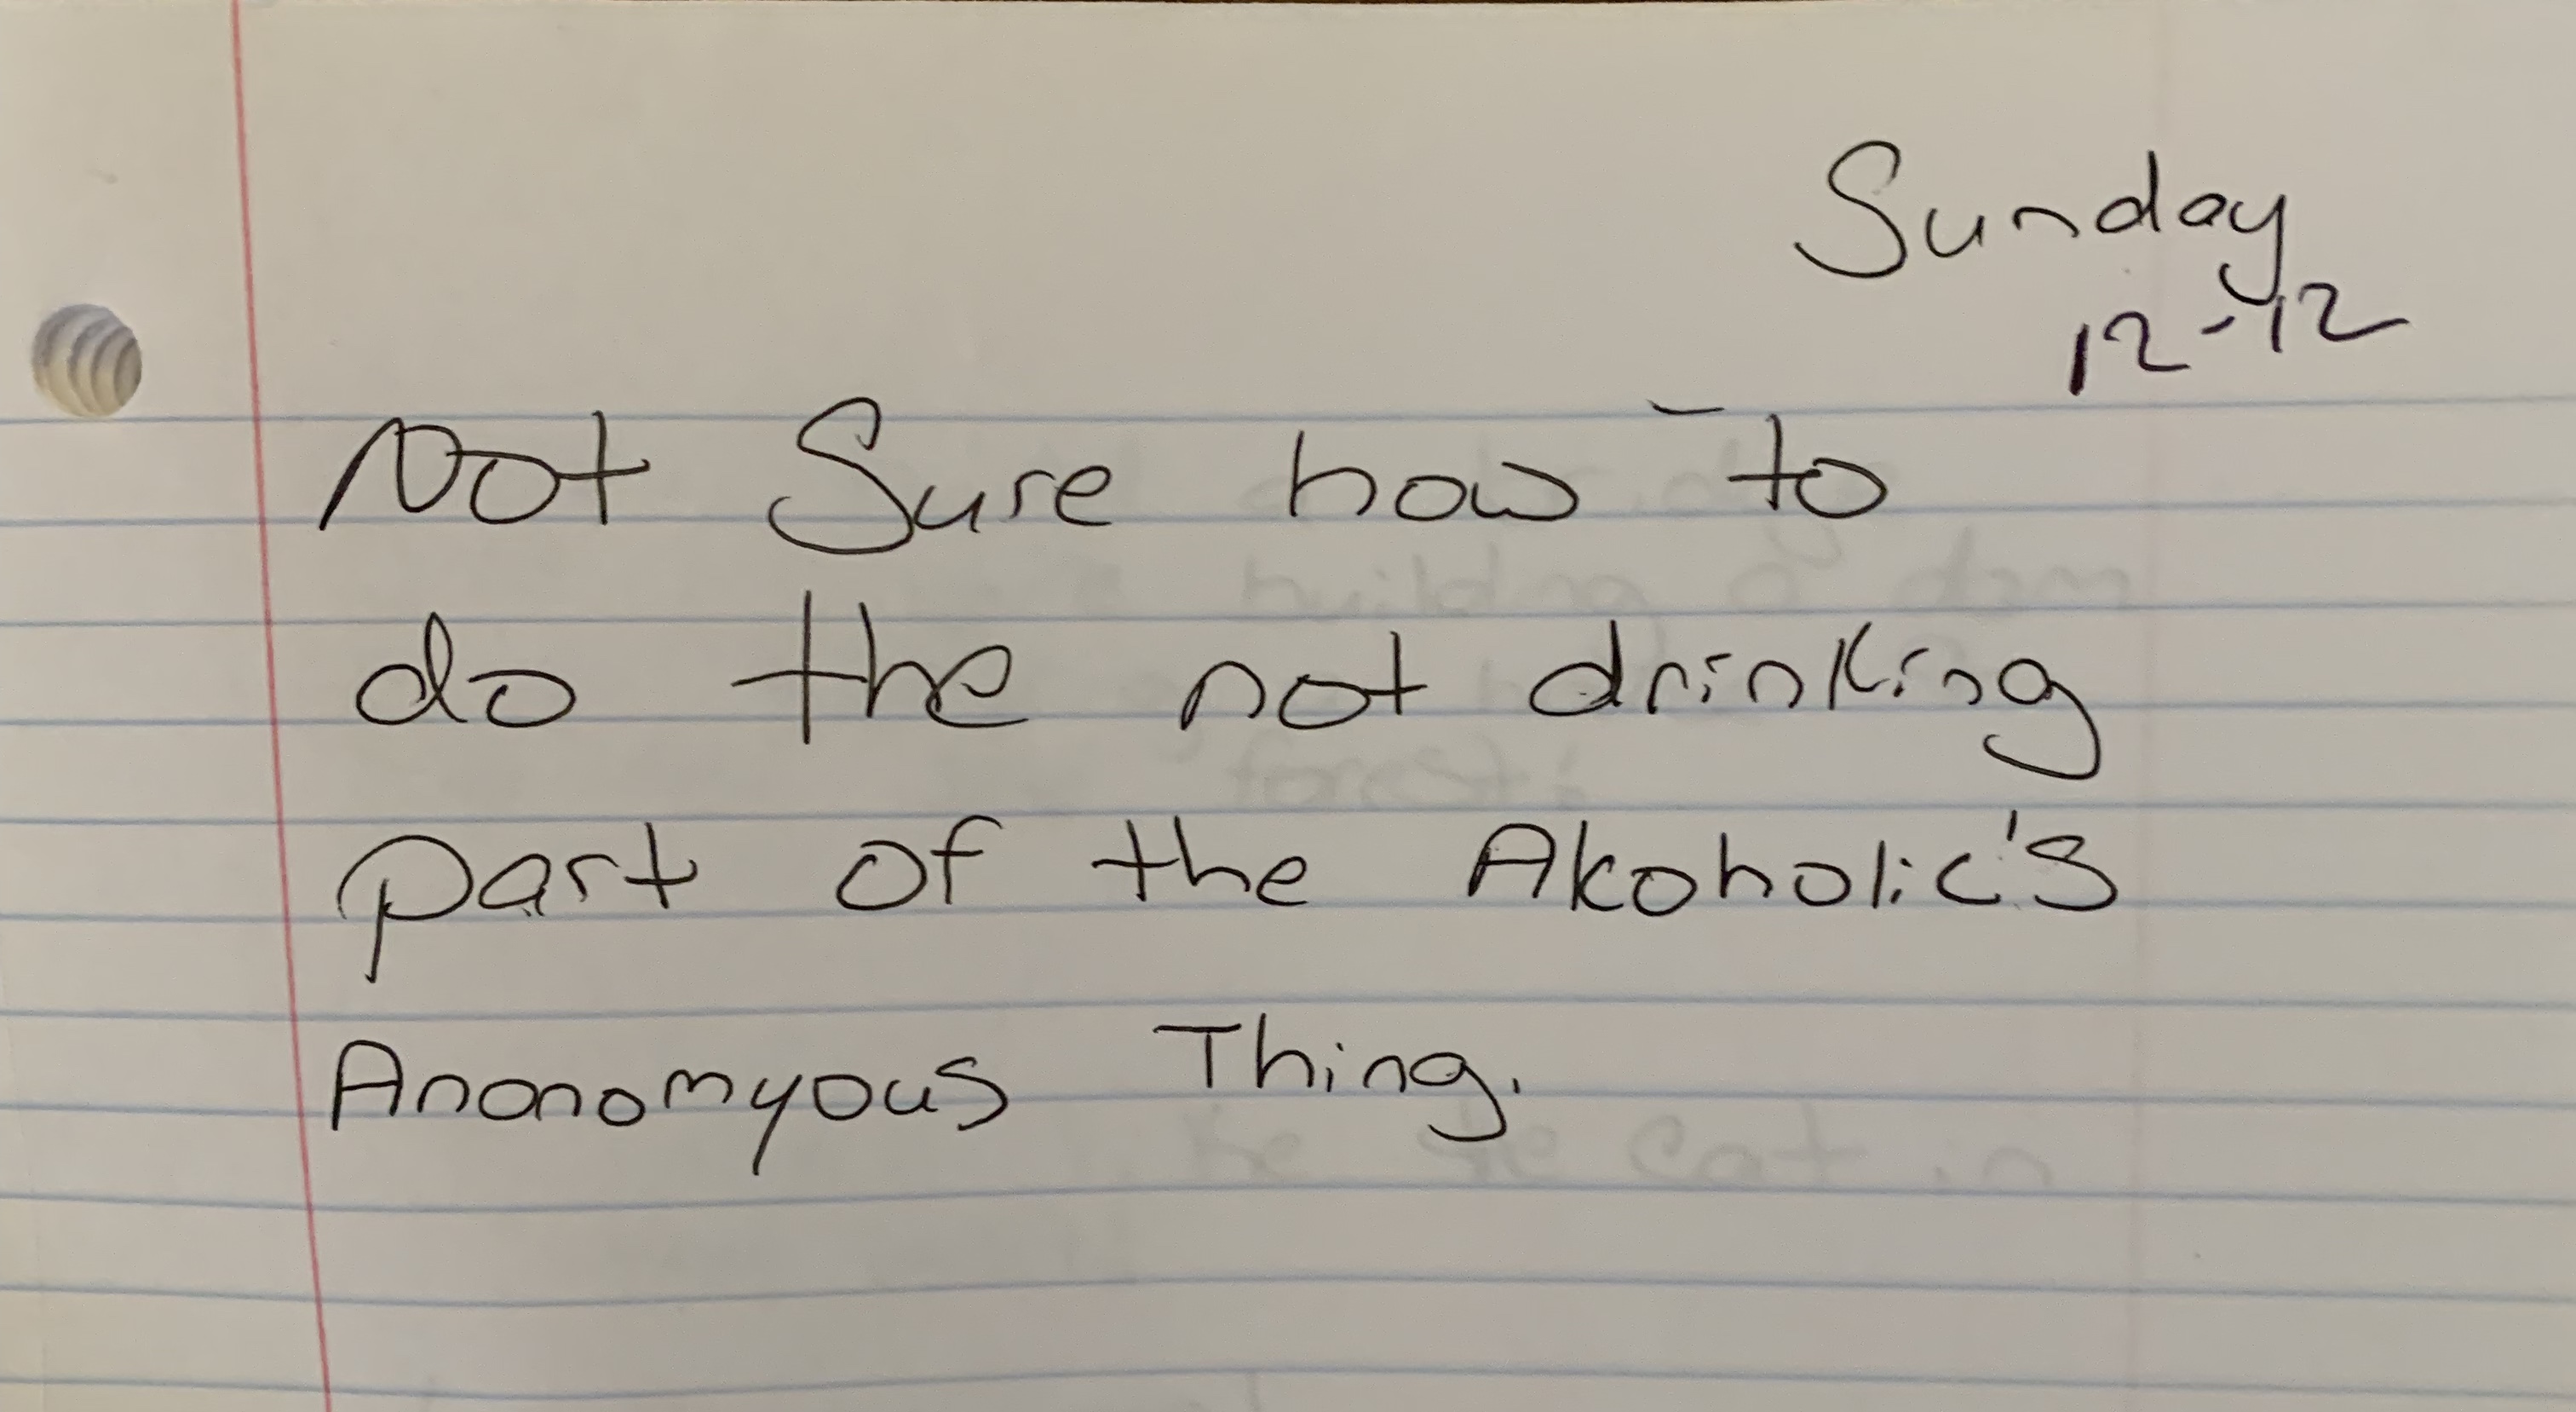 Sunday
12-12
Not Sure how to
do the not drinking
part of the Akoholic's
Anonomyous Thing.